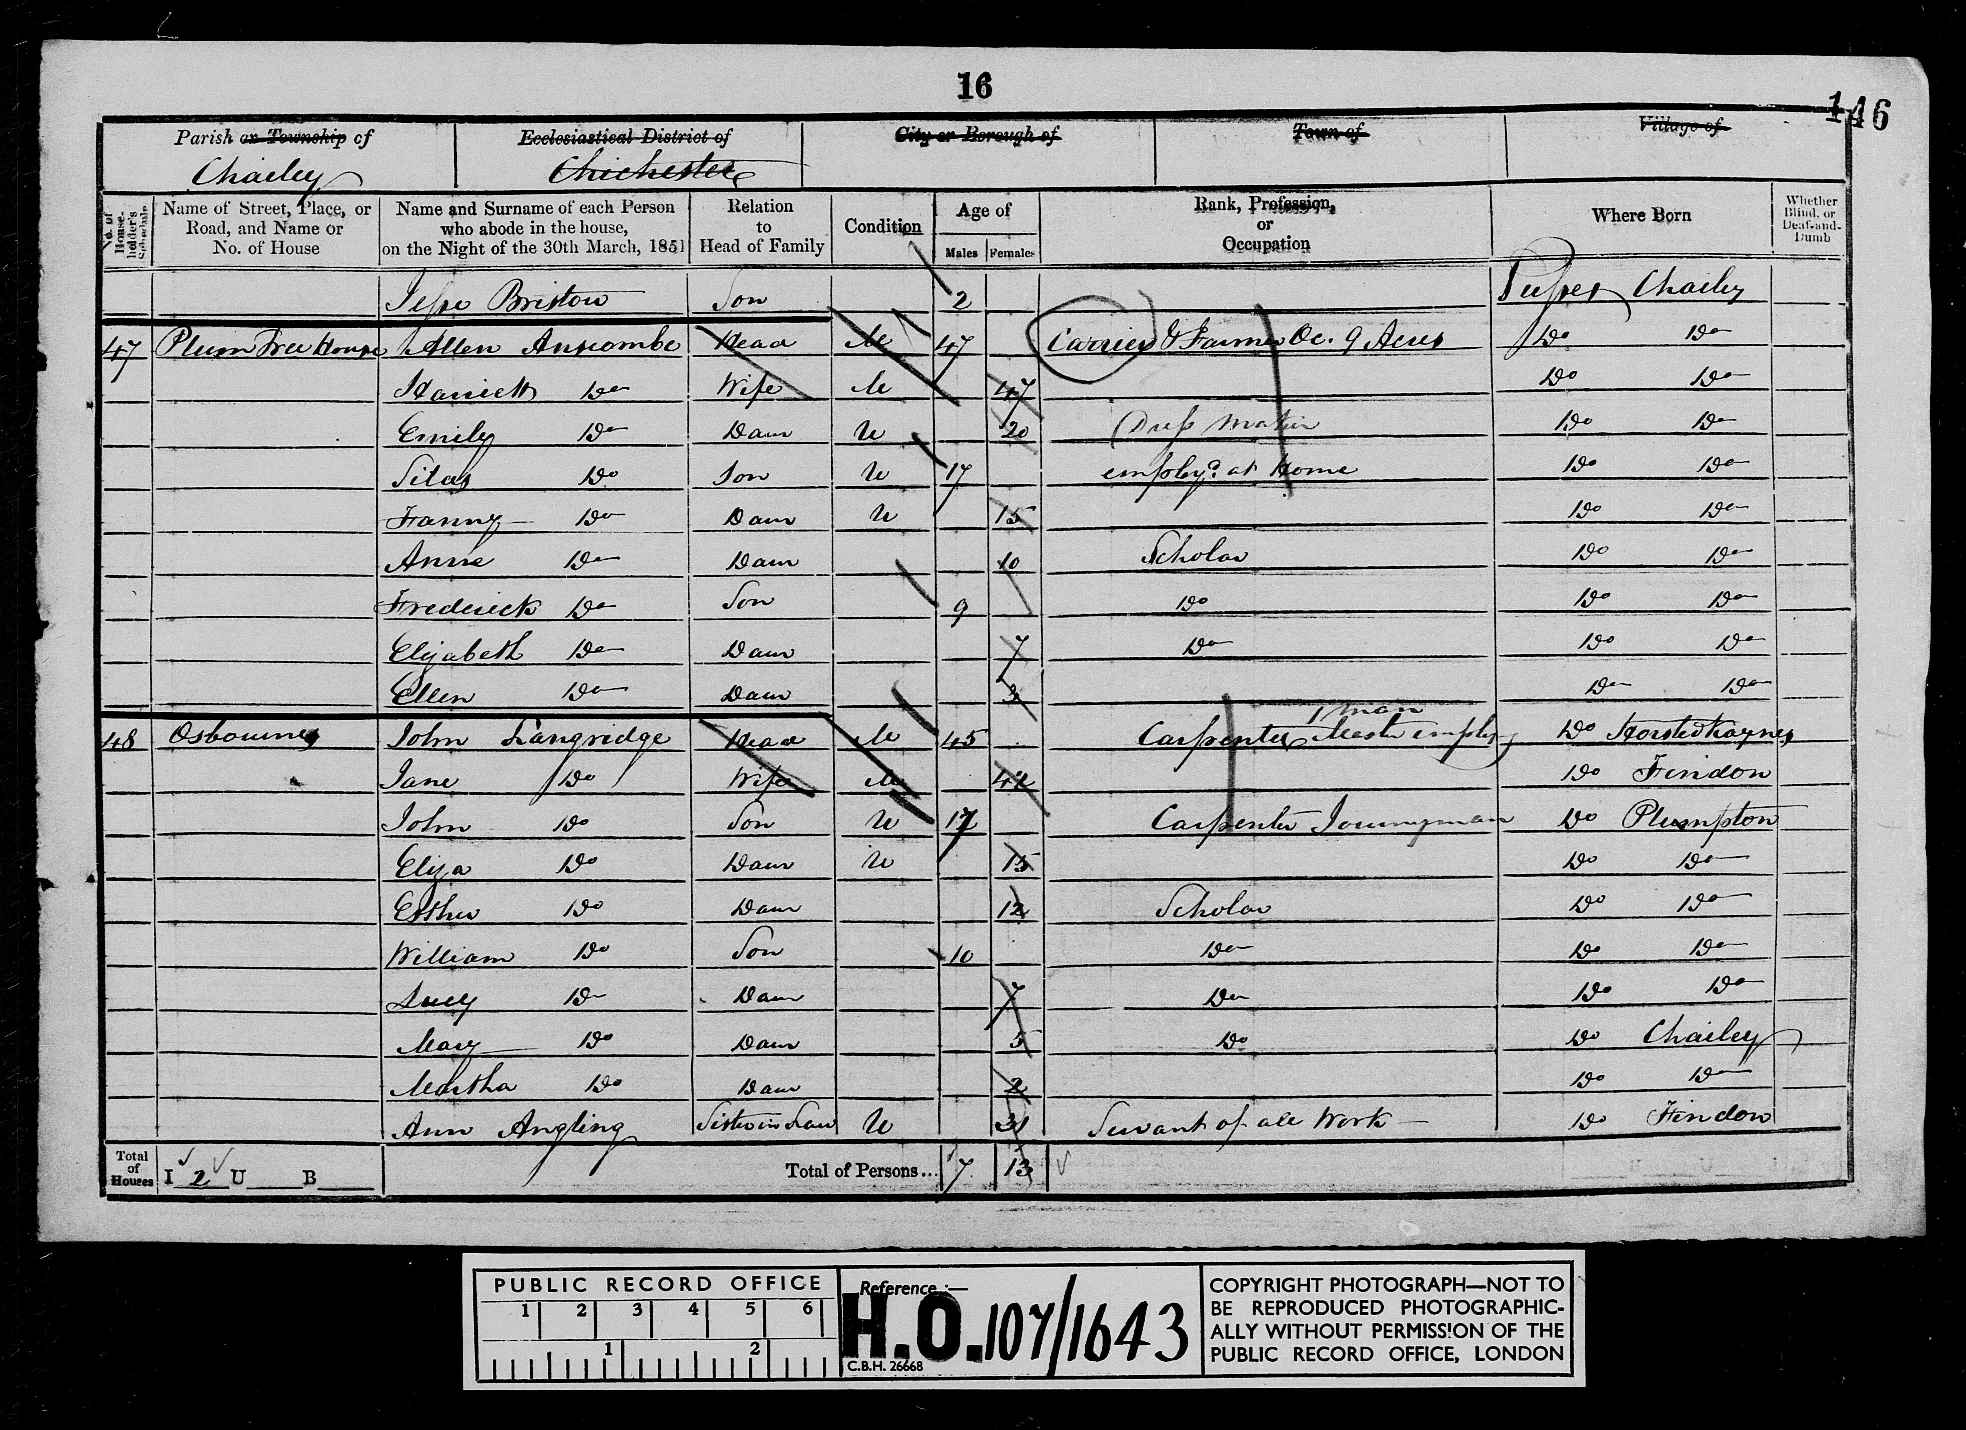 16
146
Parish or Township of
Ecclesiastical District of
City or Borough of
Town of
Village of
Chailey
Chichester
No. of House-holder's Schedule
Name of Street, Place, or Road, and Name or No. of House
Name and Surname of each Person who abode in the house, on the Night of the 30th March, 1851
Relation to Head of Family
Condition
Age of
Males
Females
Rank, Profession, or Occupation
Where Born
Whether Blind, or Deaf-and-Dumb
Jesse Bristow Son 2 Sussex Chailey
47 Plum Tree House Allen Anscombe Head M 47 Carrier & Farmer Oc. 9 Acres Do Do
Harriett Do Wife M 47 Do Do
Emily Do Daur U 20 Dress Maker Do Do
Silas Do Son U 17 employd. at Home Do Do
Fanny Do Daur U 15 Do Do
Anne Do Daur 10 Scholar Do Do
Frederick Do Son 9 Do Do Do
Elizabeth Do Daur 7 Do Do Do
Ellen Do Daur Do Do
1 man
48 Osbournes John Langridge Head M 45 Carpenter Master employg Do Horsted Kaynes
Jane Do Wife M 42 Do Findon
John Do Son U 17 Carpenter Journeyman Do Plumpton
Eliza Do Daur U 15 Do Do
Esther Do Daur 12 Scholar Do Do
William Do Son 10 Do Do Do
Lucy Do Daur 7 Do Do Do
Mary Do Daur 5 Do Do Chailey
Martha Do Daur 2 Do Do
Ann Angling Sister in Law U 31 Servant of all Work Do Findon
Total of Houses I 2 U B Total of Persons... 7 13
PUBLIC RECORD OFFICE
1 2 3 4 5 6
1 2
Reference:—
H.O. 107/1643
C.B.H. 26668
COPYRIGHT PHOTOGRAPH—NOT TO
BE REPRODUCED PHOTOGRAPHIC-
ALLY WITHOUT PERMISSION OF THE
PUBLIC RECORD OFFICE, LONDON